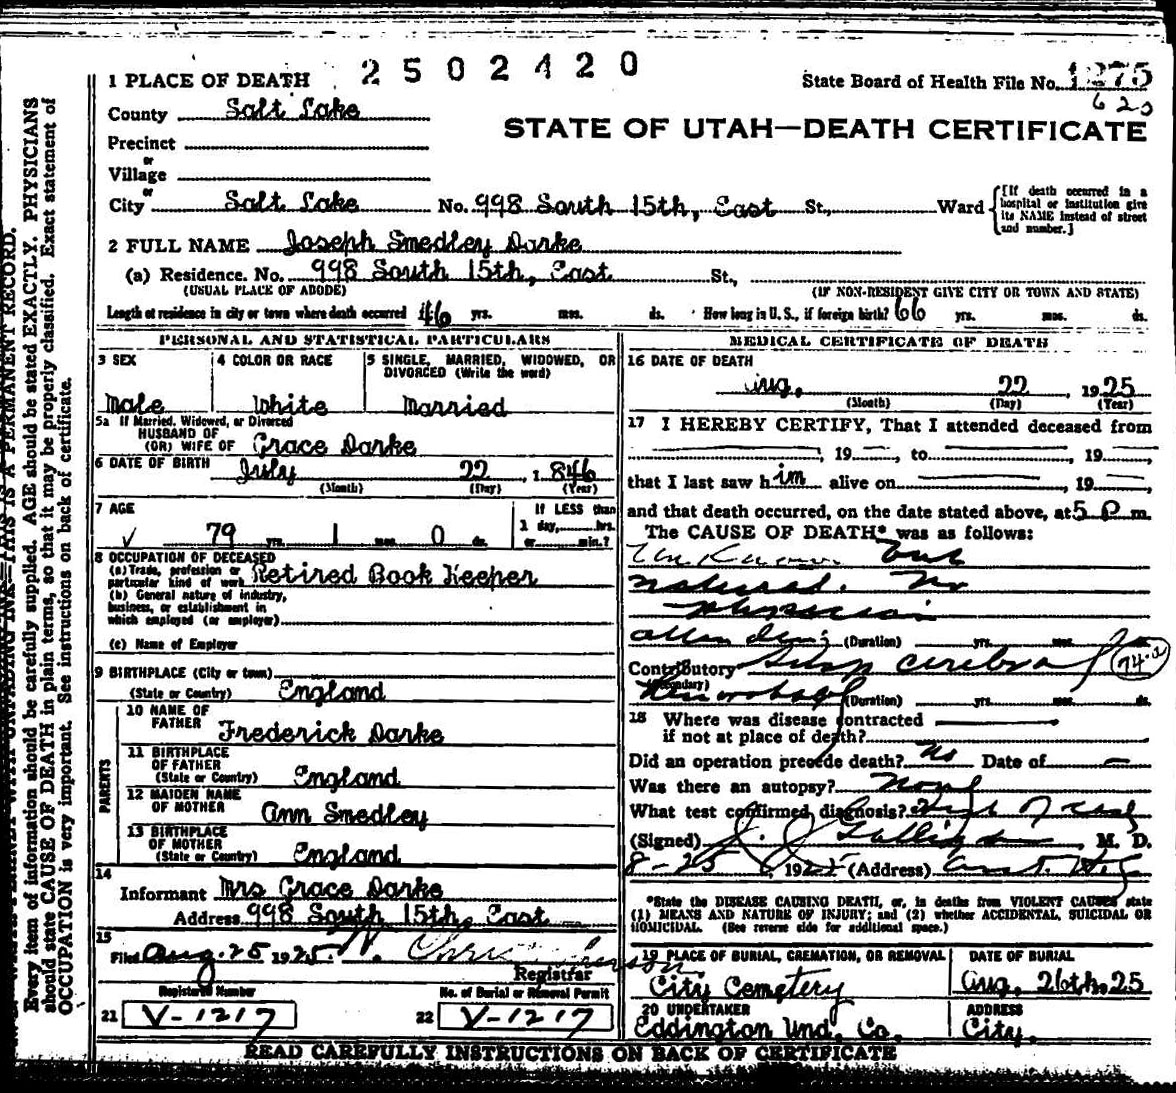 2502420
1 PLACE OF DEATH
State Board of Health File No. 1275
620
County Salt Lake
STATE OF UTAH—DEATH CERTIFICATE
Precinct
or
Village
or
City Salt Lake No. 998 South 15th, East St., Ward
[If death occurred in a hospital or institution give its NAME instead of street and number.]
2 FULL NAME Joseph Smedley Darke
(a) Residence. No. 998 South 15th, East St.,
(USUAL PLACE OF ABODE) (IF NON-RESIDENT GIVE CITY OR TOWN AND STATE)
Length of residence in city or town where death occurred 46 yrs. mos. ds. How long in U. S., if foreign birth? 66 yrs. mos. ds.
PERSONAL AND STATISTICAL PARTICULARS
3 SEX
Male
4 COLOR OR RACE
White
5 SINGLE, MARRIED, WIDOWED, OR
DIVORCED (Write the word)
Married
5a If Married, Widowed, or Divorced
HUSBAND OF
(OR) WIFE OF Grace Darke
6 DATE OF BIRTH July 22, 1846
(Month) (Day) (Year)
7 AGE
79 yrs. 1 mos. 0 ds.
If LESS than
1 day, hrs.
or min.?
8 OCCUPATION OF DECEASED
(a) Trade, profession or
particular kind of work Retired Book Keeper
(b) General nature of industry,
business, or establishment in
which employed (or employer)
(c) Name of Employer
9 BIRTHPLACE (City or town)
(State or Country) England
PARENTS
10 NAME OF
FATHER Frederick Darke
11 BIRTHPLACE
OF FATHER
(State or Country) England
12 MAIDEN NAME
OF MOTHER Ann Smedley
13 BIRTHPLACE
OF MOTHER
(State or Country) England
14
Informant Mrs Grace Darke
Address 998 South 15th, East
15
Filed Aug. 25 1925.
Registrar
Registered Number No. of Burial or Removal Permit
21 V-1217 22 V-1217
MEDICAL CERTIFICATE OF DEATH
16 DATE OF DEATH
Aug. 22, 1925
(Month) (Day) (Year)
17 I HEREBY CERTIFY, That I attended deceased from
, 19 , to , 19
that I last saw him alive on , 19
and that death occurred, on the date stated above, at 5 P m.
The CAUSE OF DEATH* was as follows:
Unknown but
natural. No
physician
attending (Duration) yrs. mos. ds.
Contributory cerebral
(Secondary) Hemorrhage (Duration) yrs. mos. ds.
74-a
18 Where was disease contracted
if not at place of death?
Did an operation precede death? No Date of
Was there an autopsy? None
What test confirmed diagnosis?
(Signed) M. D.
8-25 1925 (Address)
*State the DISEASE CAUSING DEATH, or, in deaths from VIOLENT CAUSES state
(1) MEANS AND NATURE OF INJURY; and (2) whether ACCIDENTAL, SUICIDAL OR
HOMICIDAL. (See reverse side for additional space.)
19 PLACE OF BURIAL, CREMATION, OR REMOVAL
City Cemetery
DATE OF BURIAL
Aug. 26th. 25
20 UNDERTAKER
Eddington Und. Co.
ADDRESS
City.
READ CAREFULLY INSTRUCTIONS ON BACK OF CERTIFICATE
Every item of information should be carefully supplied. AGE should be stated EXACTLY. PHYSICIANS
should state CAUSE OF DEATH in plain terms, so that it may be properly classified. Exact statement of
OCCUPATION is very important. See instructions on back of certificate.